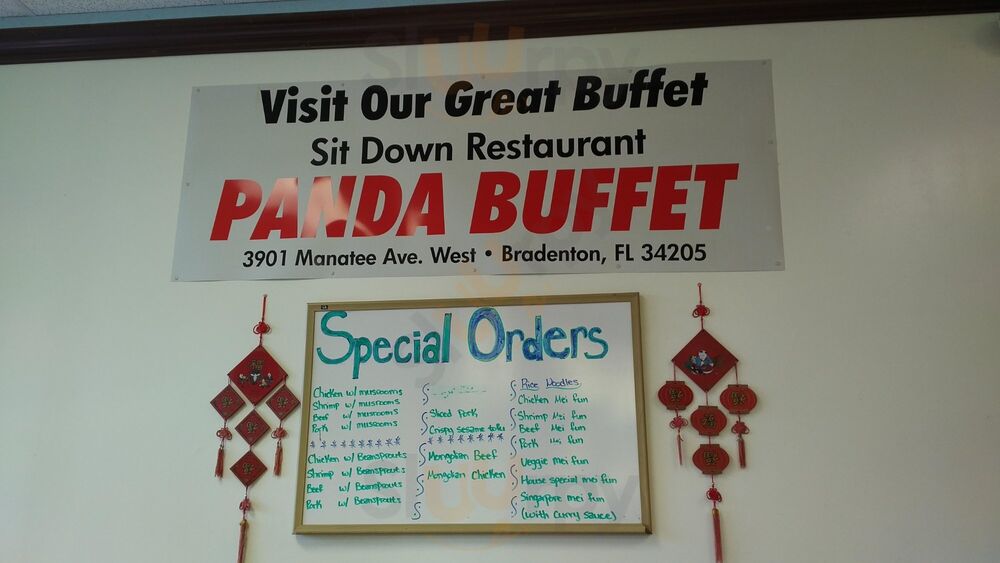 Visit Our Great Buffet
Sit Down Restaurant
PANDA BUFFET
3901 Manatee Ave. West • Bradenton, FL 34205
Special Orders
Chicken w/ musrooms
Shrimp w/ musrooms
Beef w/ musrooms
Pork w/ musrooms
Chicken w/ Beansprouts
Shrimp w/ Beansprouts
Beef w/ Beansprouts
Pork w/ Beansprouts
Sliced Pork
Crispy sesame tofu
Mongolian Beef
Mongolian Chicken
Rice Noodles
Chicken Mei fun
Shrimp Mei fun
Beef Mei fun
Pork Mei fun
Veggie mei fun
House special mei fun
Singapore mei fun
(with curry sauce)